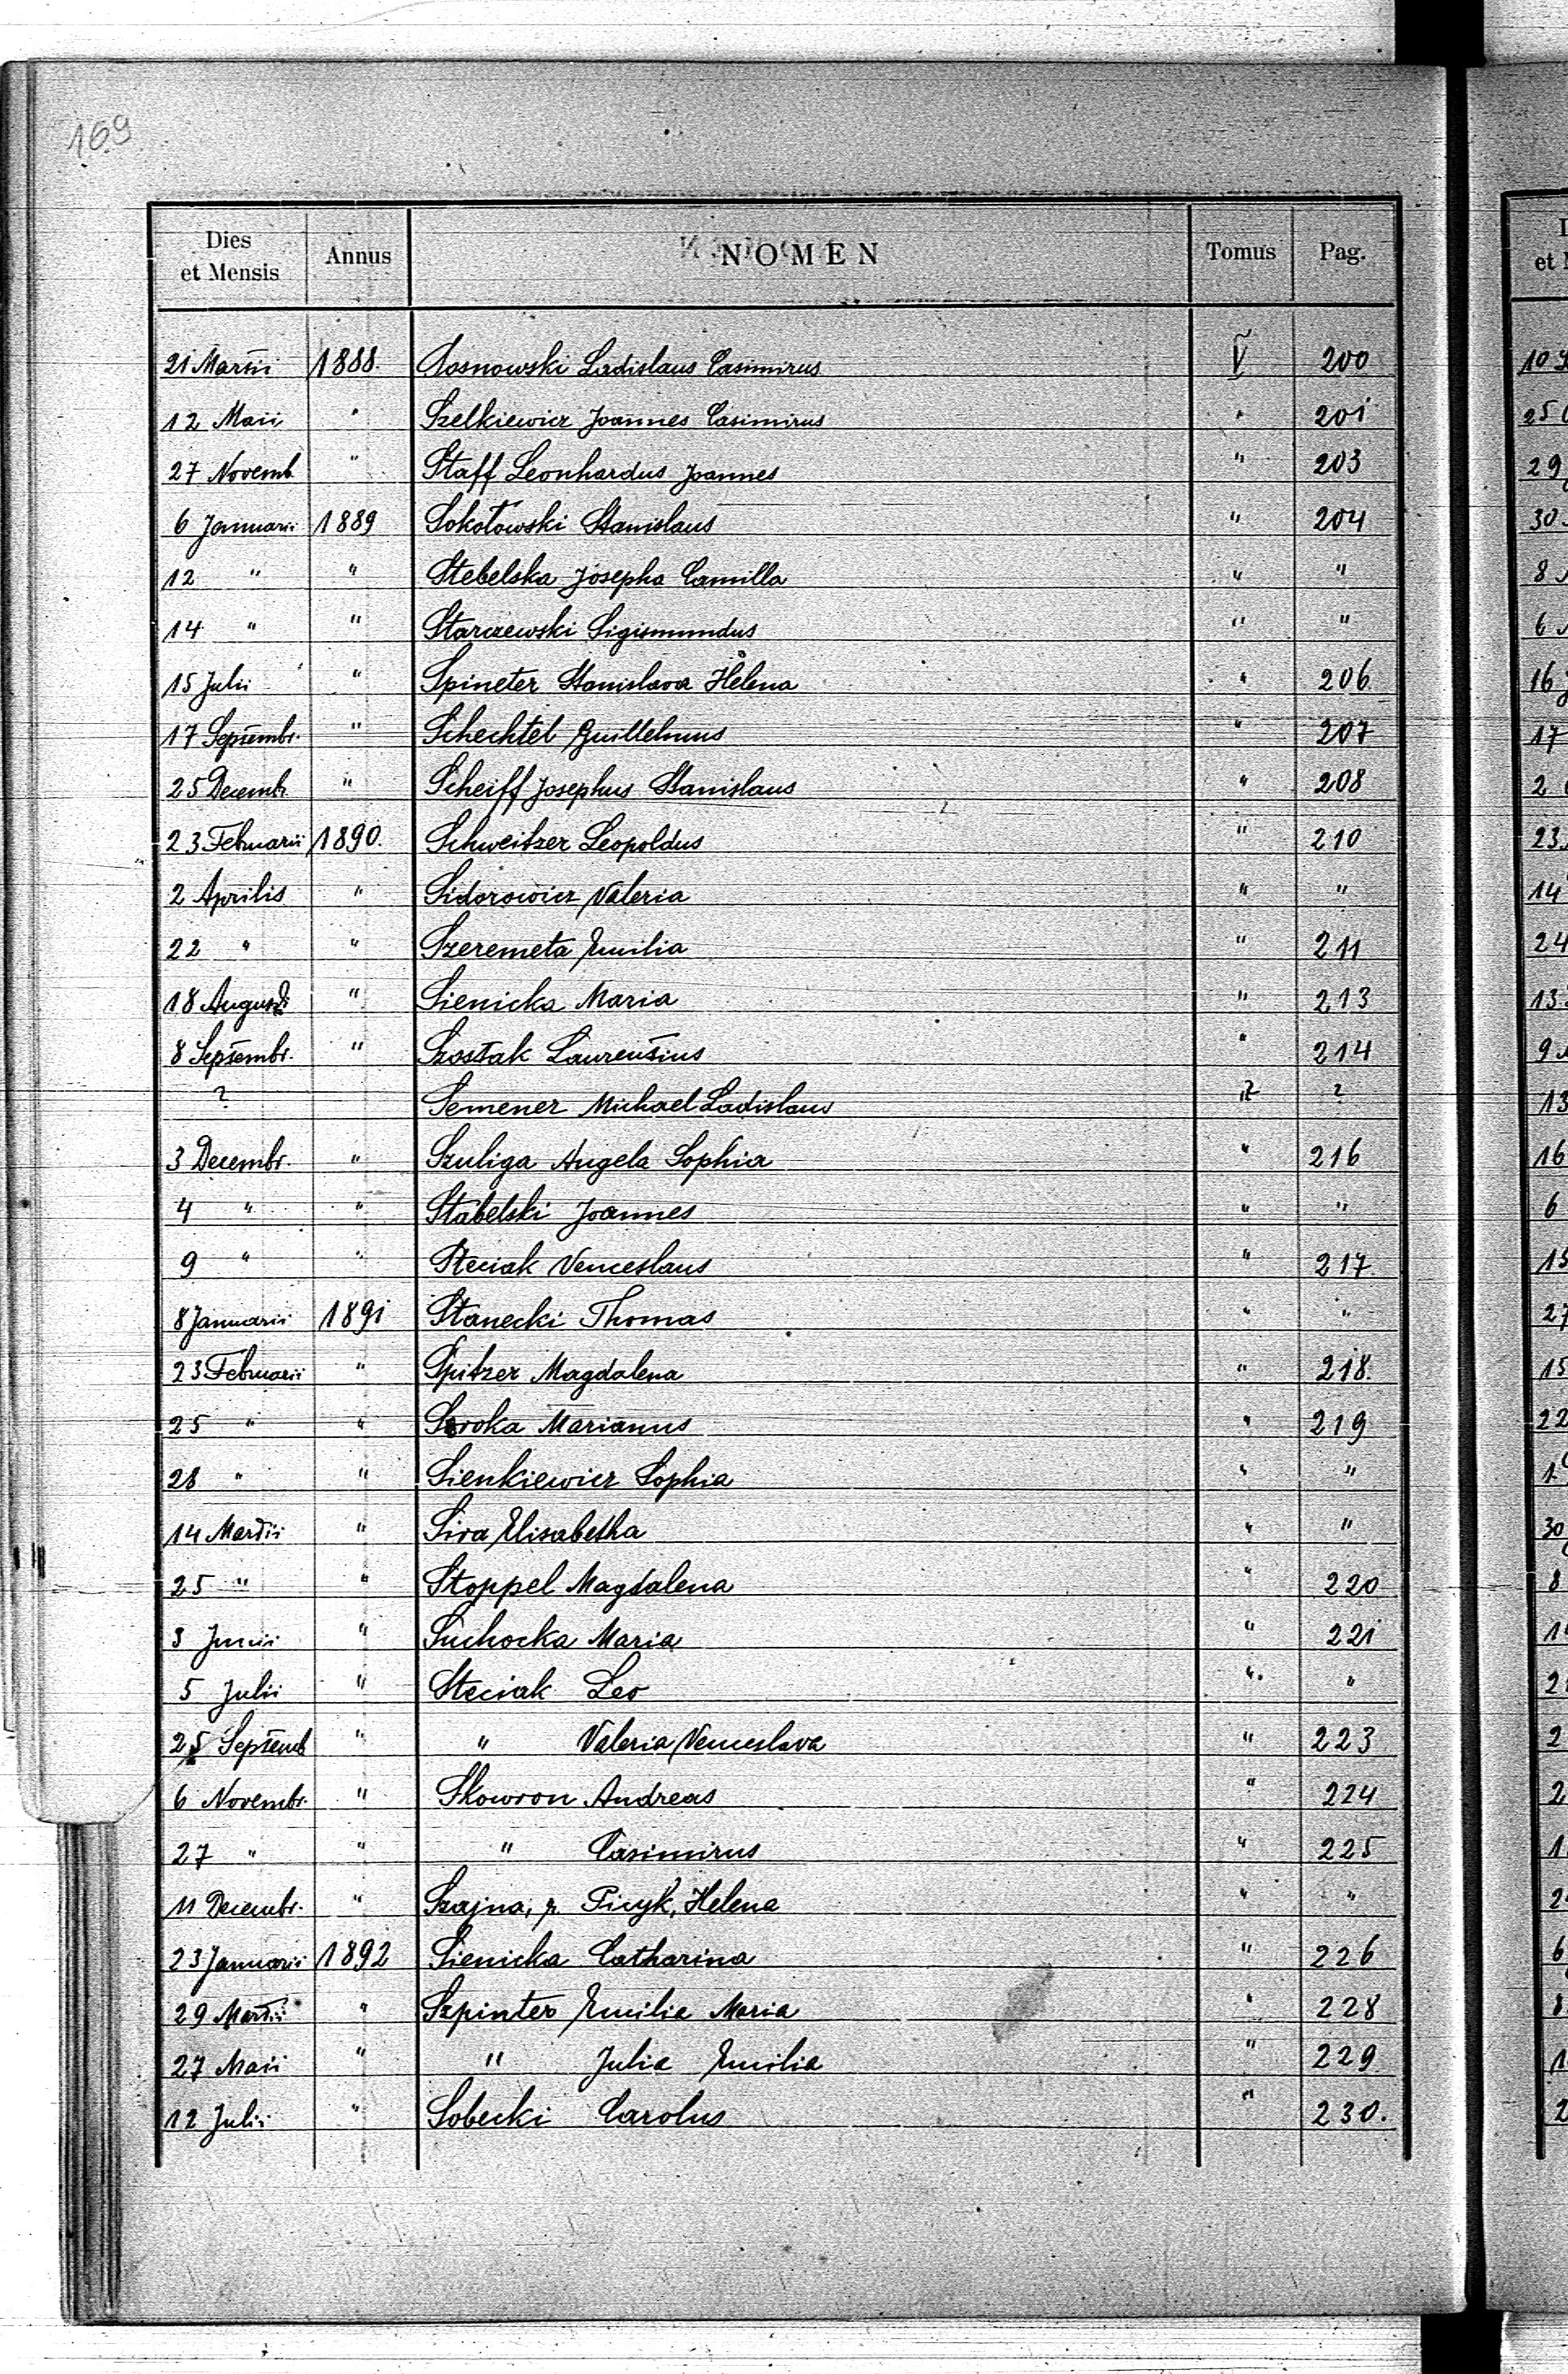 169
Dies et Mensis Annus NOMEN Tomus Pag.
21 Martii 1888. Sosnowski Ladislaus Casimirus V 200
12 Maii " Szelkiewicz Joannes Casimirus " 201
27 Novemb " Staff Leonhardus Joannes " 203
6 Januarii 1889 Sokołowski Stanislaus " 204
12 " " Stebelska Josepha Camilla " "
14 " " Starczewski Sigismundus " "
15 Julii " Spineter Stanislava Helena " 206
17 Septembr. " Schechtel Guillelmus " 207
25 Decembr " Scheiff Josephus Stanislaus " 208
23 Februarii 1890. Schweitzer Leopoldus " 210
2 Aprilis " Sidorowicz Valeria " "
22 " " Szeremeta Emilia " 211
18 Augusti " Sienicka Maria " 213
8 Septembr. " Szostak Laurentius " 214
? Semener Michael Ladislaus ? ?
3 Decembr. " Szuliga Angela Sophia " 216
4 " " Stabelski Joannes " "
9 " " Steciak Venceslaus " 217
8 Januarii 1891 Stanecki Thomas " "
23 Februarii " Spitzer Magdalena " 218.
25 " " Sroka Marianus " 219
28 " " Sienkiewicz Sophia " "
14 Martii " Sira Elisabetha " "
25 " " Stoppel Magdalena " 220
3 Junii " Suchocka Maria " 221
5 Julii " Steciak Leo " "
25 Septemb " " Valeria Venceslava " 223
6 Novembr. " Skowron Andreas " 224
27 " " " Casimirus " 225
11 Decembr. " Szajna, p. Picyk, Helena " "
23 Januarii 1892 Sienicka Catharina " 226
29 Martii " Szpinter Emilia Maria " 228
27 Maii " " Julia Emilia " 229
12 Julii " Sobecki Carolus " 230.